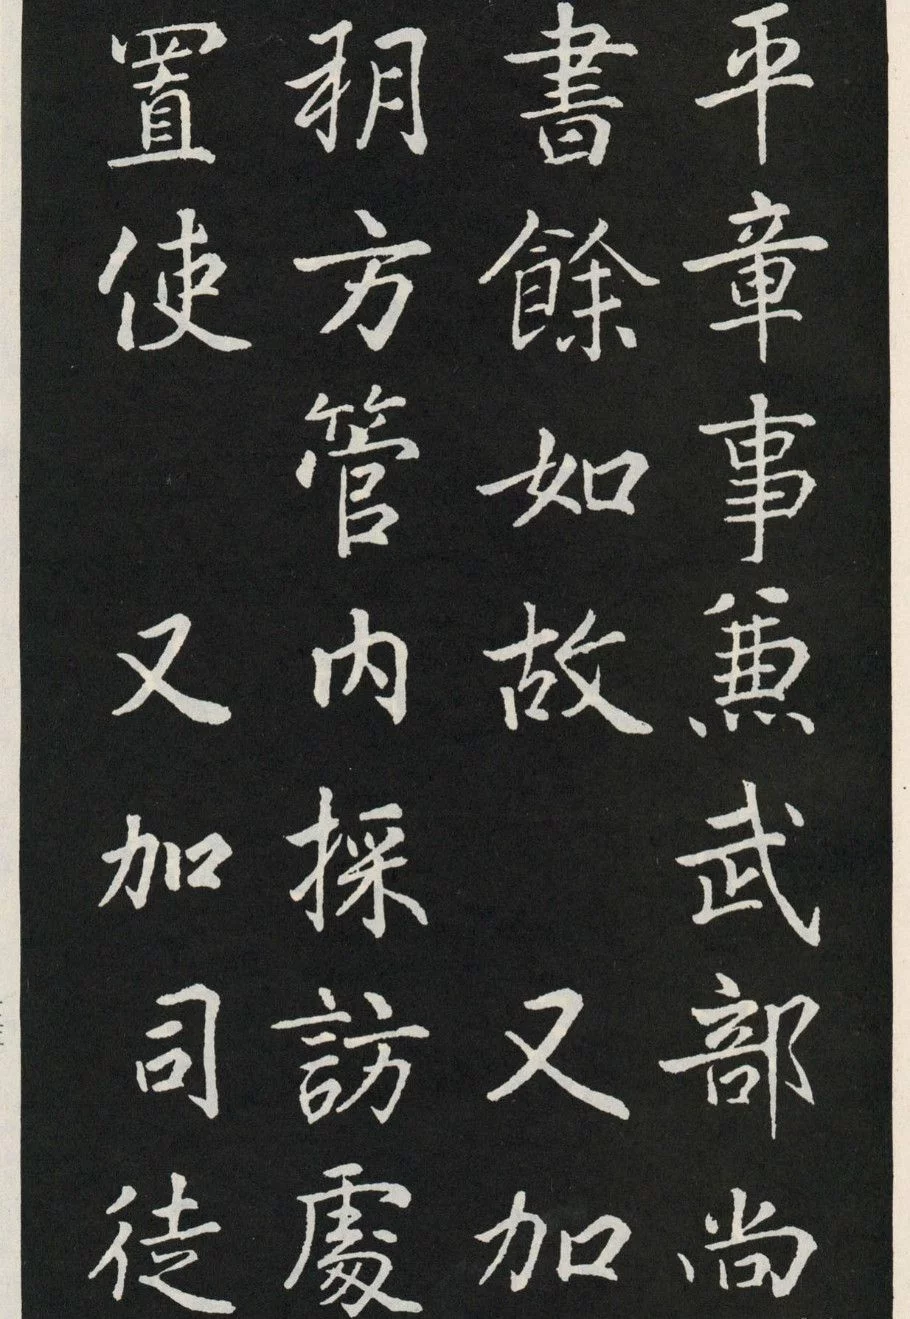 平章事兼武部尚
書餘如故 又加
朔方管內採訪處
置使 又加司徒